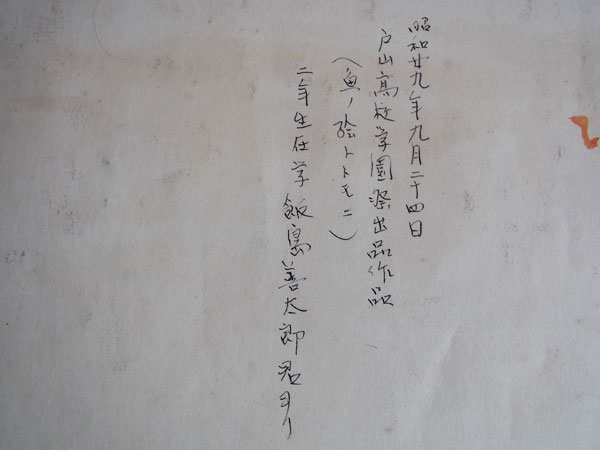 昭和廿九年九月二十四日
戸山高校学園祭出品作品
（魚ノ絵トトモニ）
二年生在学 飯島善太郎君ヨリ